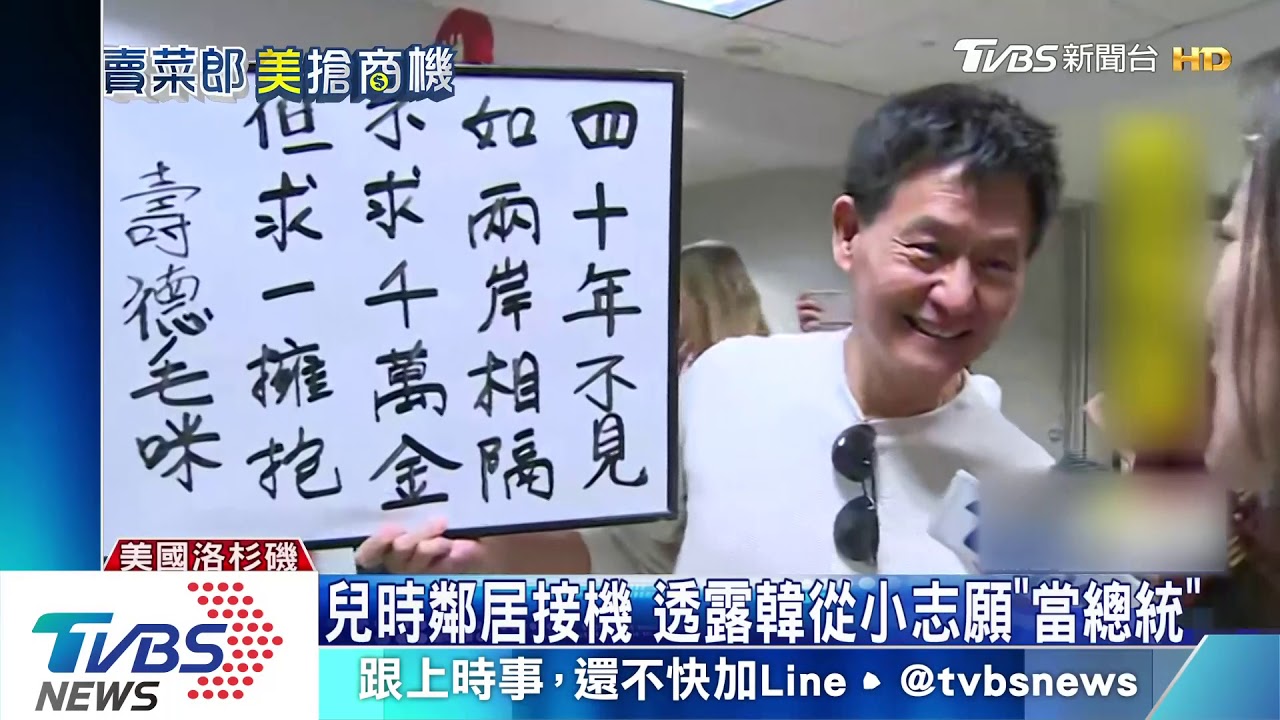 賣菜郎 美搶商機
TVBS新聞台 HD
四十年不見
如兩岸相隔
不求千萬金
但求一擁抱
壽德毛咪
美國洛杉磯
兒時鄰居接機 透露韓從小志願"當總統"
TVBS
NEWS
跟上時事,還不快加Line ▸ @tvbsnews